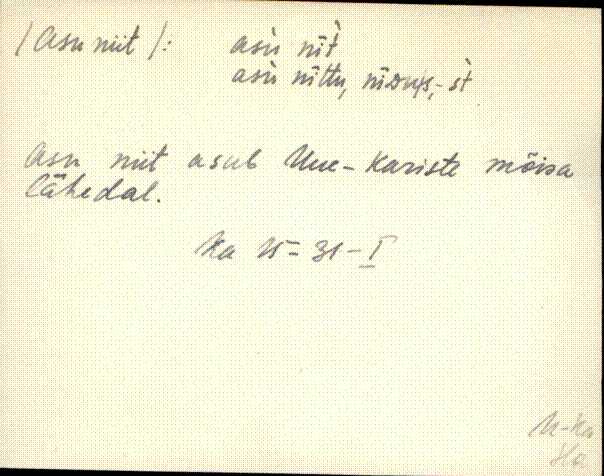 /Asu niit/: asù nīt̀
asù nīttu, nīᴅuɪ̯s, -st̀
Asu niit asub Uue-Kariste mõisa
lähedal.
Ka 15= 31-I
U-Ka